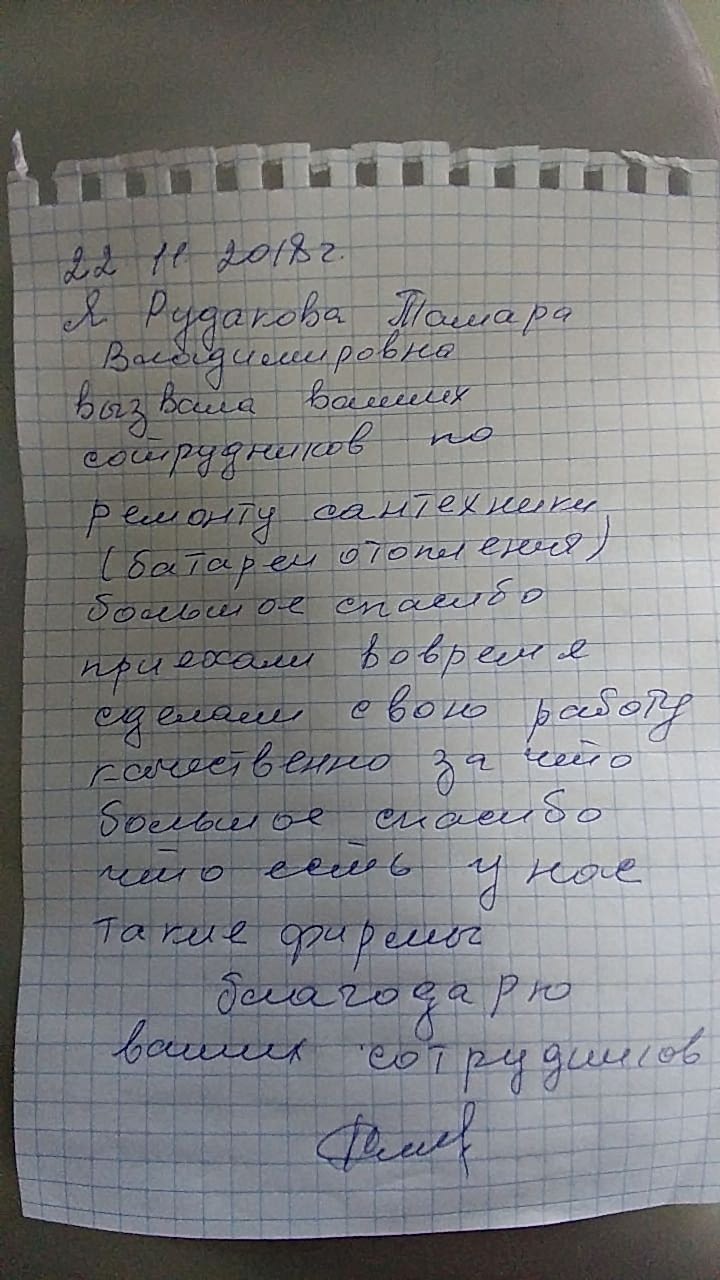 22 11 2018г.
Я Рудакова Тамара
Владимировна
вызвала ваших
сотрудников по
ремонту сантехники
(батареи отопления)
большое спасибо
приехали вовремя
сделали свою работу
качественно за что
большое спасибо
что есть у нас
такие фирмы
благодарю
ваших сотрудников